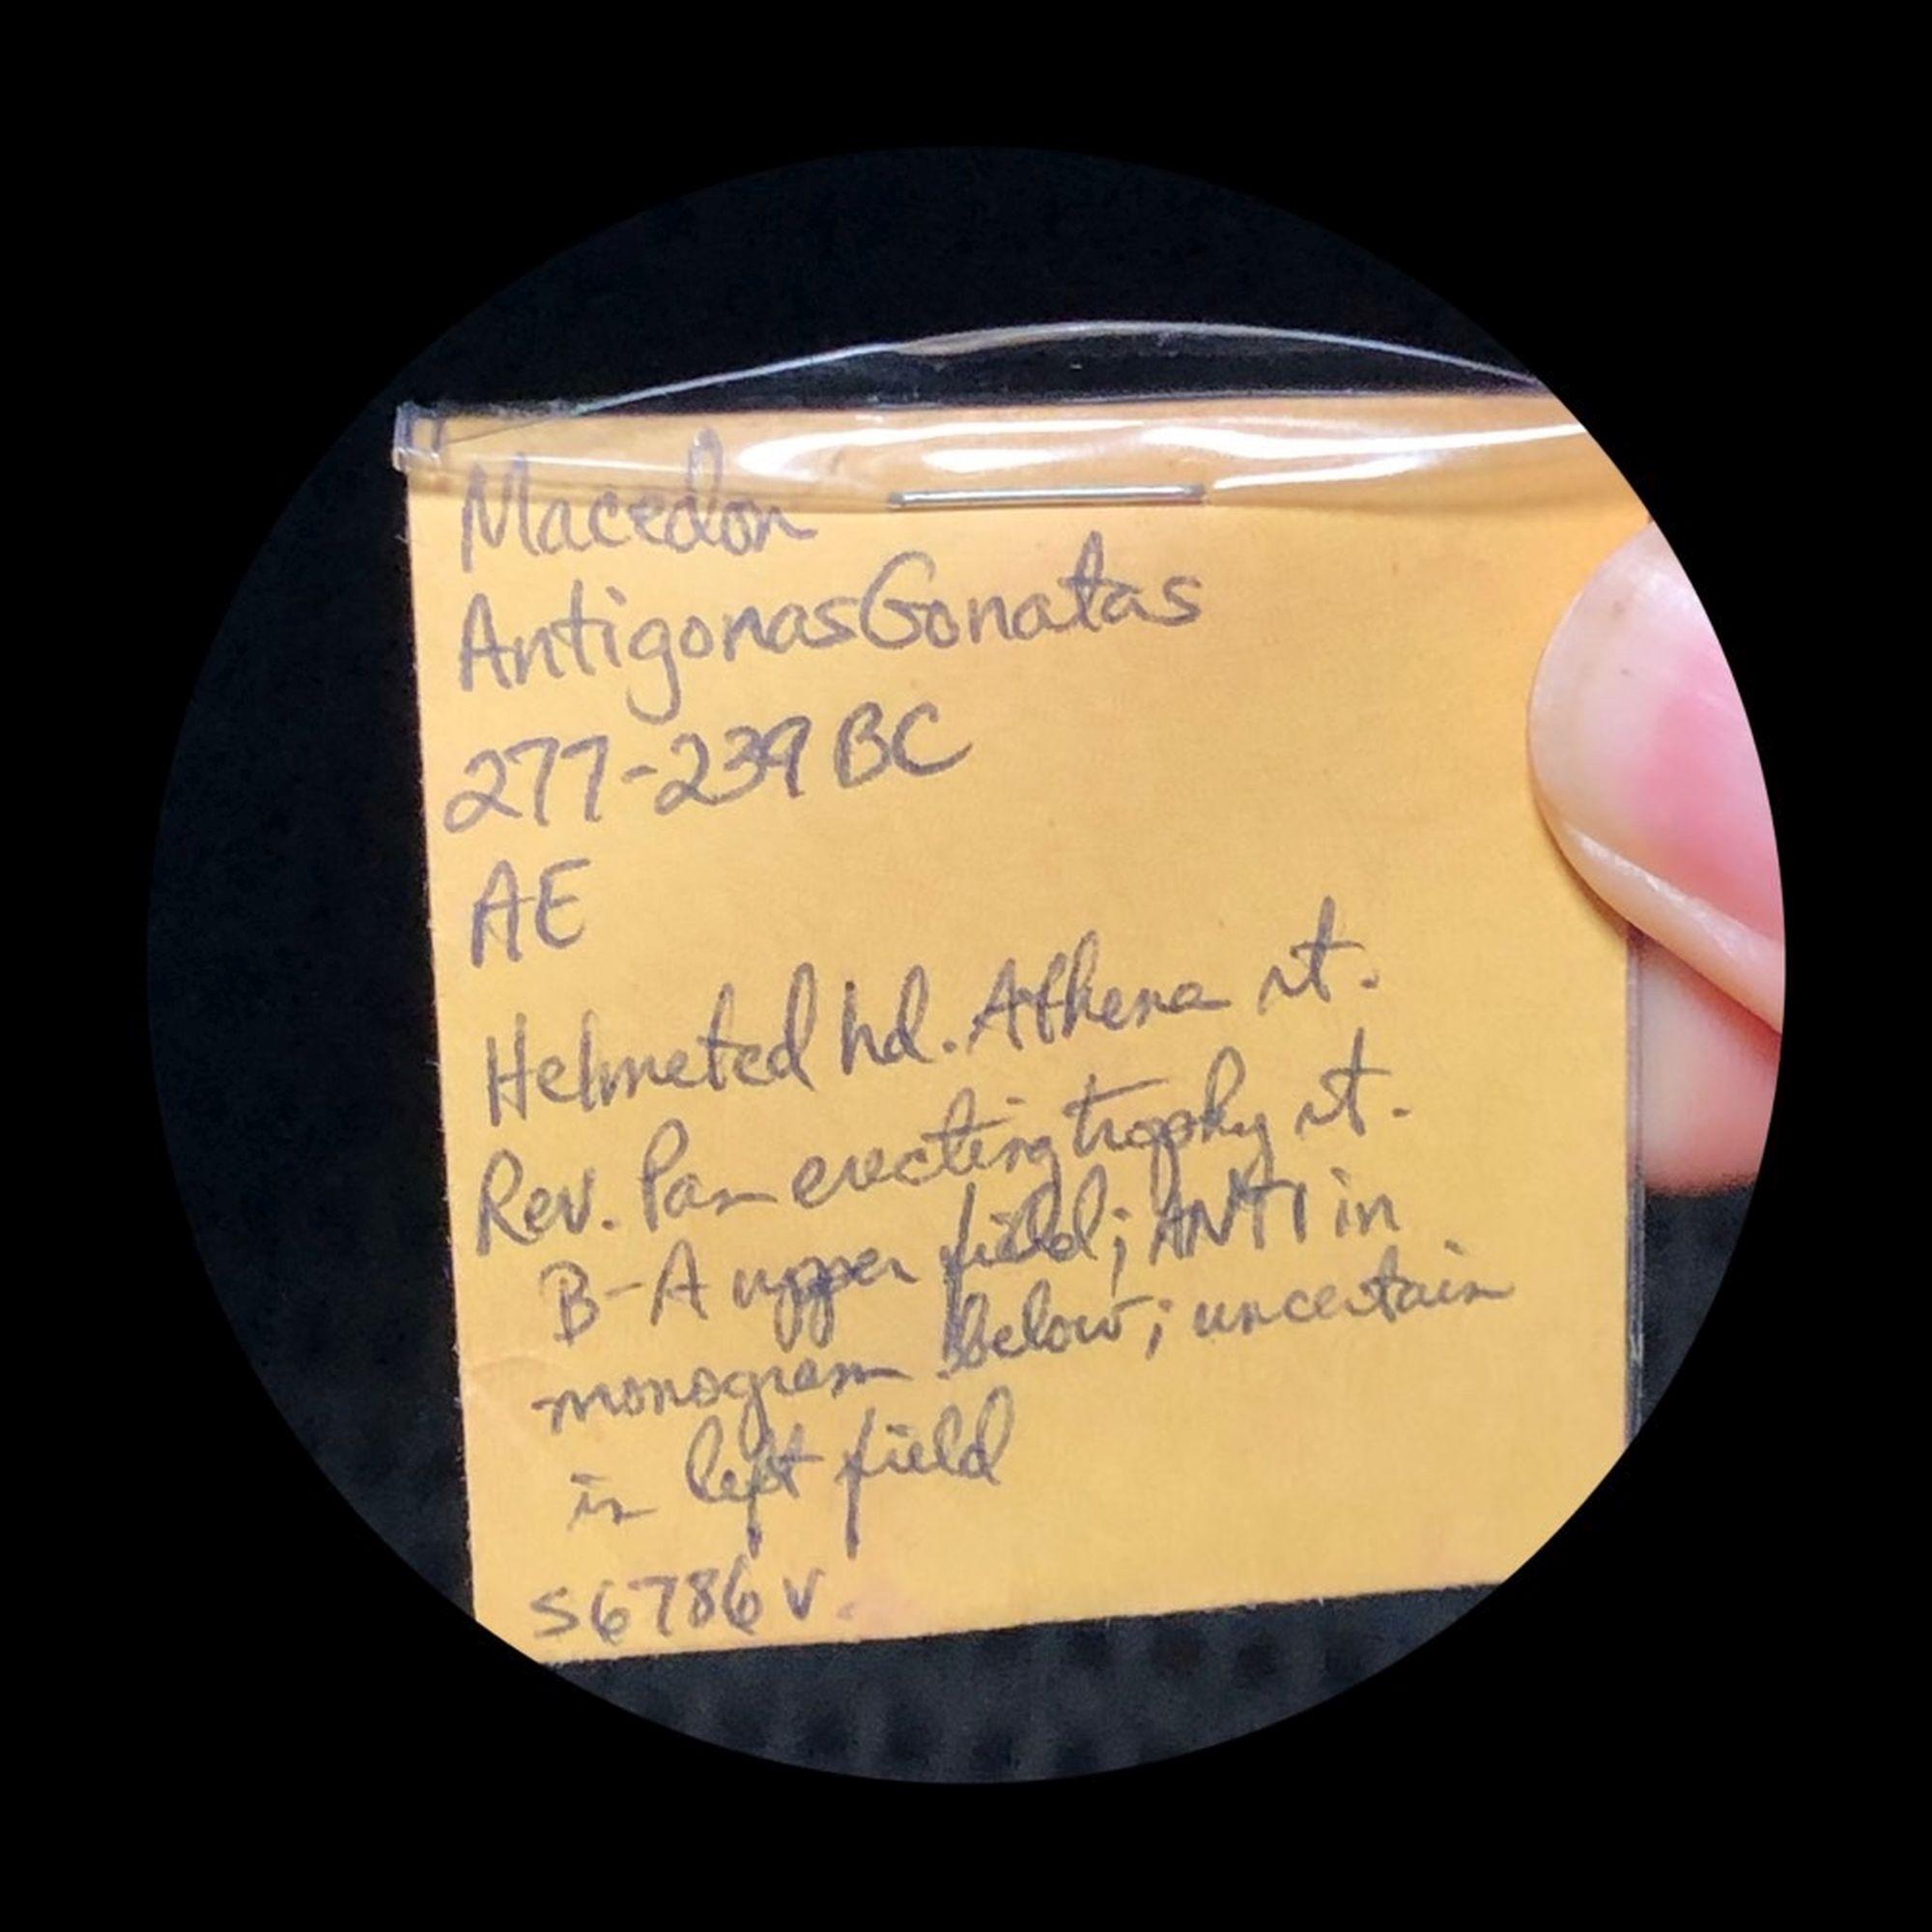 Macedon
Antigonas Gonatas
277-239 BC
AE
Helmeted hd. Athena rt.
Rev. Pan erecting trophy rt.
B-A upper field; ANTI in
monogram below; uncertain
in left field
S6786 v.